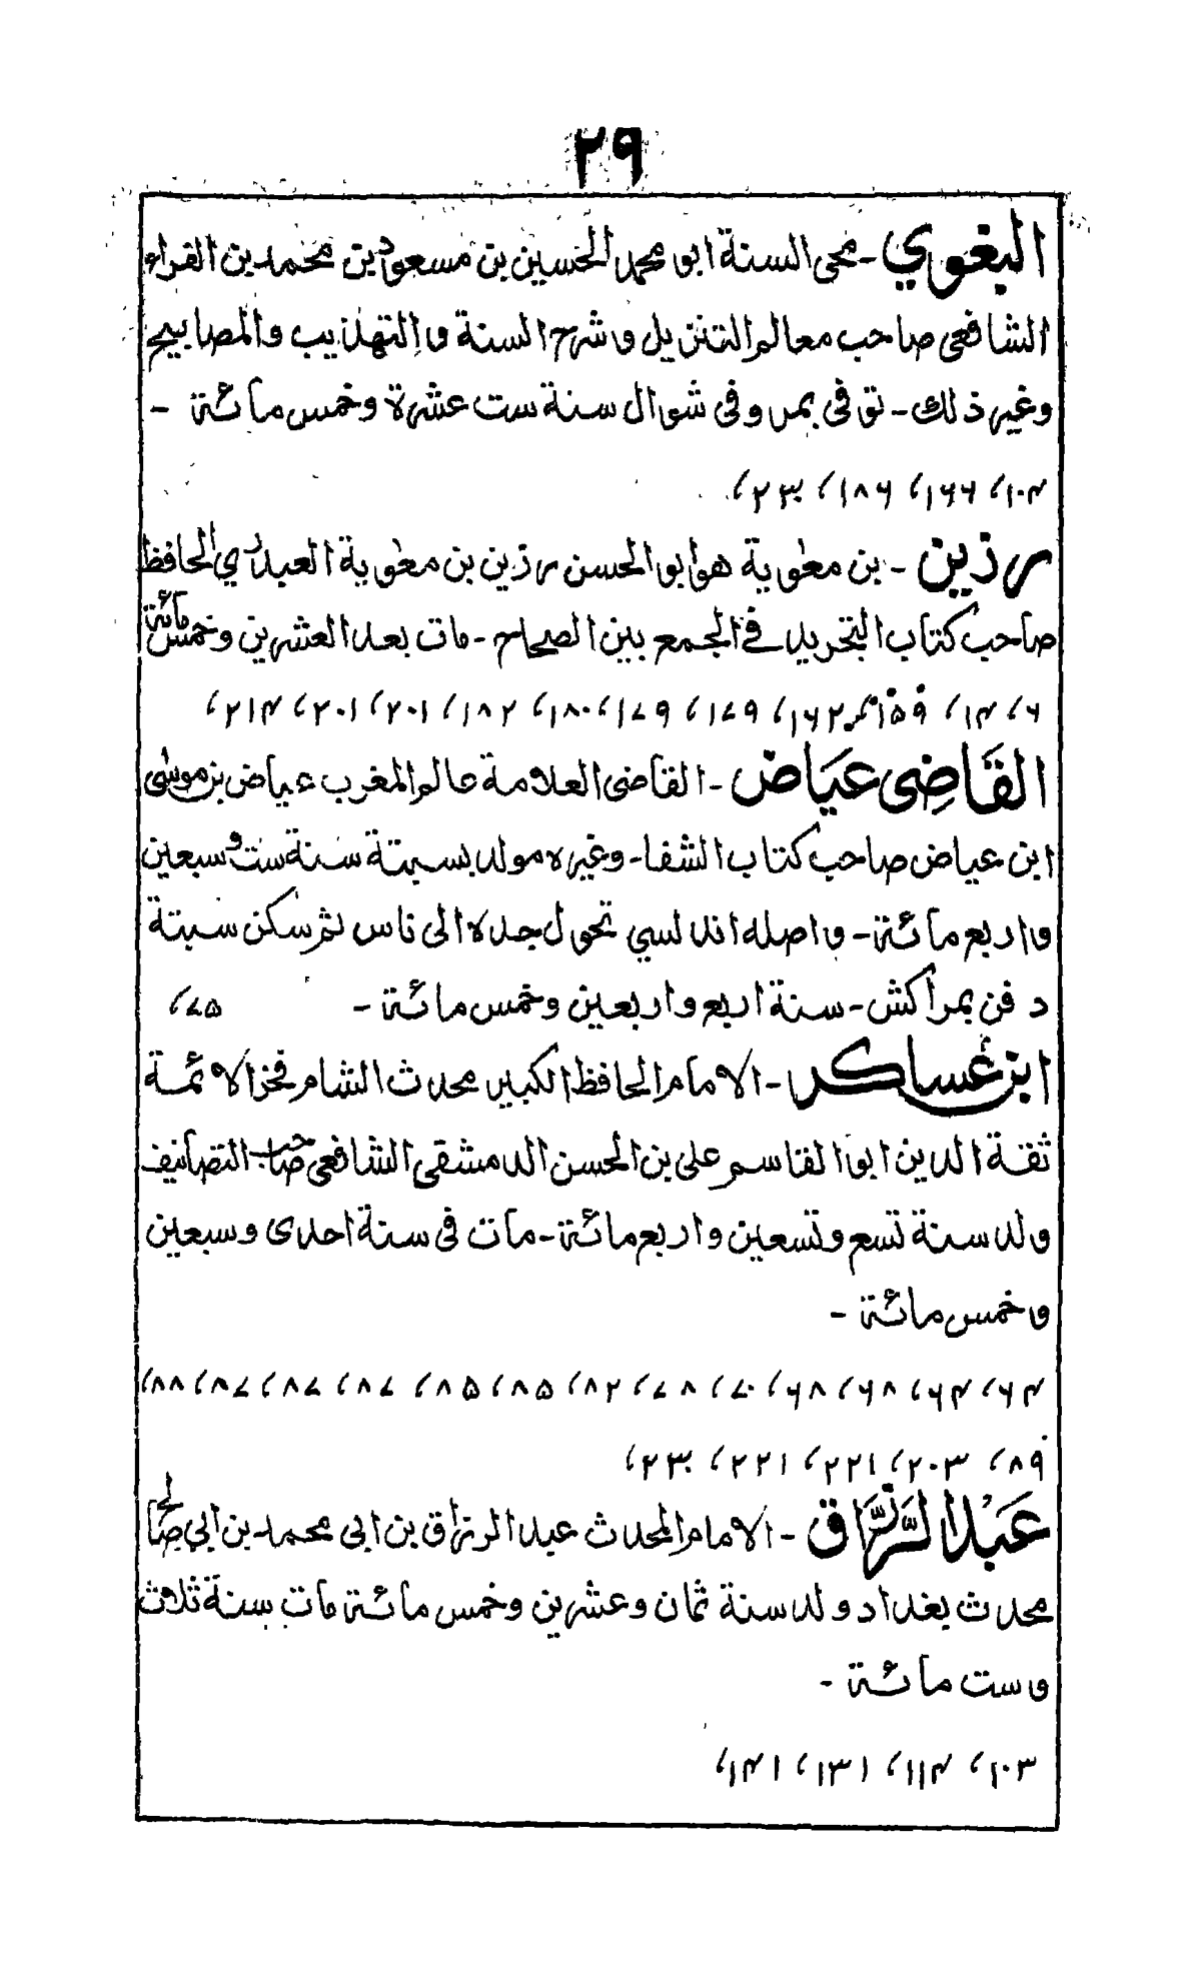 ۲۹
البغوي - محی السنة ابو محمد الحسین بن مسعود بن محمد بن الفراء
الشافعی صاحب معالم التنزیل و شرح السنة و التهذیب والمصابیح
وغیر ذلك - توفی بمرو فی شوال سنة ست عشرة وخمس مائة -
۱۰۴، ۱۶۶، ۱۸۶، ۲۳۰،
رزین - بن معٰویة هو ابو الحسن رزین بن معٰویة العبدری الحافظ
صاحب کتاب التجرید فی الجمع بین الصحاح - مات بعد العشرین وخمس مائة
۶، ۱۴، ۱۶۲، ۱۷۹، ۱۷۹، ۱۸۰، ۱۸۲، ۲۰۱، ۲۰۱، ۲۱۴،
القَاضِی عیَاض - القاضی العلامة عالم المغرب عیاض بن موسٰی
ابن عیاض صاحب کتاب الشفا - وغیره مولد بسبتة سنة ست و سبعین
و اربع مائة - و اصله اندلسي تحول جده الی ناس ثم سکن سبتة
دفن بمراکش - سنة اربع و اربعین وخمس مائة - ۷۵،
ابن عساکر - الامام الحافظ الکبیر محدث الشام فخر الائمة
ثقة الدین ابو القاسم علی بن الحسن الدمشقی الشافعی صاحب التصانیف
ولد سنة تسع و تسعین و اربع مائة - مات فی سنة احدی و سبعین
و خمس مائة -
۶۴، ۶۴، ۶۸، ۶۸، ۷۰، ۷۸، ۸۲، ۸۵، ۸۵، ۸۷، ۸۷، ۸۷، ۸۸،
۸۹، ۲۰۳، ۲۲۱، ۲۲۱، ۲۳۰،
عَبْدالرَّزَّاق - الامام المحدث عبد الرزاق بن ابی محمد بن ابي صالح
محدث بغداد ولد سنة ثمان وعشرین وخمس مائة مات سنة ثلاث
و ست مائة -
۱۰۳، ۱۱۴، ۱۳۱، ۱۴۱،